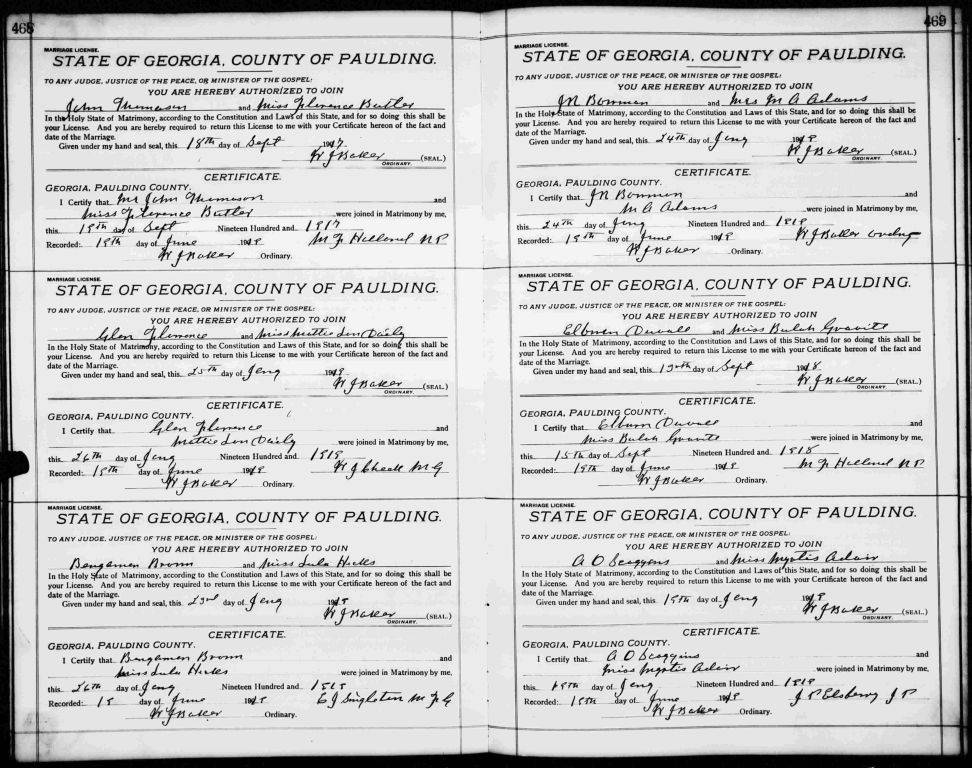 468
MARRIAGE LICENSE.
STATE OF GEORGIA, COUNTY OF PAULDING.
TO ANY JUDGE, JUSTICE OF THE PEACE, OR MINISTER OF THE GOSPEL:
YOU ARE HEREBY AUTHORIZED TO JOIN
John Thomason and Miss Florence Butler
In the Holy State of Matrimony, according to the Constitution and Laws of this State, and for so doing this shall be
your License. And you are hereby required to return this License to me with your Certificate hereon of the fact and
date of the Marriage.
Given under my hand and seal, this 18th day of Sept 1917.
W J Baker (SEAL.)
ORDINARY.
CERTIFICATE.
GEORGIA, PAULDING COUNTY.
I Certify that Mr John Thomason and
Miss Florence Butler were joined in Matrimony by me,
this 19th day of Sept Nineteen Hundred and 1917
Recorded: 19th day of June 1919 M F Holland N P
W J Baker Ordinary.
MARRIAGE LICENSE.
STATE OF GEORGIA, COUNTY OF PAULDING.
TO ANY JUDGE, JUSTICE OF THE PEACE, OR MINISTER OF THE GOSPEL:
YOU ARE HEREBY AUTHORIZED TO JOIN
Glen Florence and Miss Mattie Lou
In the Holy State of Matrimony, according to the Constitution and Laws of this State, and for so doing this shall be
your License. And you are hereby required to return this License to me with your Certificate hereon of the fact and
date of the Marriage.
Given under my hand and seal, this 25th day of 1919.
W J Baker (SEAL.)
ORDINARY.
CERTIFICATE.
GEORGIA, PAULDING COUNTY.
I Certify that Glen Florence and
Mattie Lou were joined in Matrimony by me,
this 26th day of Nineteen Hundred and 1919
Recorded: 19th day of June 1919 W J Cheek M G
W J Baker Ordinary.
MARRIAGE LICENSE.
STATE OF GEORGIA, COUNTY OF PAULDING.
TO ANY JUDGE, JUSTICE OF THE PEACE, OR MINISTER OF THE GOSPEL:
YOU ARE HEREBY AUTHORIZED TO JOIN
Bengamen Brown and Miss Lula Hicks
In the Holy State of Matrimony, according to the Constitution and Laws of this State, and for so doing this shall be
your License. And you are hereby required to return this License to me with your Certificate hereon of the fact and
date of the Marriage.
Given under my hand and seal, this 23rd day of 1919
W J Baker (SEAL.)
ORDINARY.
CERTIFICATE.
GEORGIA, PAULDING COUNTY.
I Certify that Bengamen Brown and
Miss Lula Hicks were joined in Matrimony by me,
this 26th day of Nineteen Hundred and 1919
Recorded: 19 day of June 1919 E J Singleton M G
W J Baker Ordinary.
469
MARRIAGE LICENSE.
STATE OF GEORGIA, COUNTY OF PAULDING.
TO ANY JUDGE, JUSTICE OF THE PEACE, OR MINISTER OF THE GOSPEL:
YOU ARE HEREBY AUTHORIZED TO JOIN
J N Bowman and Mrs M A Adams
In the Holy State of Matrimony, according to the Constitution and Laws of this State, and for so doing this shall be
your License. And you are hereby required to return this License to me with your Certificate hereon of the fact and
date of the Marriage.
Given under my hand and seal, this 24th day of 1919
W J Baker (SEAL.)
ORDINARY.
CERTIFICATE.
GEORGIA, PAULDING COUNTY.
I Certify that J N Bowman and
M A Adams were joined in Matrimony by me,
this 24th day of Nineteen Hundred and 1919
Recorded: 19th day of June 1919 W J Baker
W J Baker Ordinary.
MARRIAGE LICENSE.
STATE OF GEORGIA, COUNTY OF PAULDING.
TO ANY JUDGE, JUSTICE OF THE PEACE, OR MINISTER OF THE GOSPEL:
YOU ARE HEREBY AUTHORIZED TO JOIN
Duvall and Miss Bulah
In the Holy State of Matrimony, according to the Constitution and Laws of this State, and for so doing this shall be
your License. And you are hereby required to return this License to me with your Certificate hereon of the fact and
date of the Marriage.
Given under my hand and seal, this day of Sept 1918.
W J Baker (SEAL.)
ORDINARY.
CERTIFICATE.
GEORGIA, PAULDING COUNTY.
I Certify that Elburn Duvall and
Miss Bulah were joined in Matrimony by me,
this 15th day of Sept Nineteen Hundred and 1918
Recorded: 19th day of June 1919 M F Holland N P
W J Baker Ordinary.
MARRIAGE LICENSE.
STATE OF GEORGIA, COUNTY OF PAULDING.
TO ANY JUDGE, JUSTICE OF THE PEACE, OR MINISTER OF THE GOSPEL:
YOU ARE HEREBY AUTHORIZED TO JOIN
A O Scoggins and Miss Myrtis Adair
In the Holy State of Matrimony, according to the Constitution and Laws of this State, and for so doing this shall be
your License. And you are hereby required to return this License to me with your Certificate hereon of the fact and
date of the Marriage.
Given under my hand and seal, this 19th day of 1919
W J Baker (SEAL.)
ORDINARY.
CERTIFICATE.
GEORGIA, PAULDING COUNTY.
I Certify that A O Scoggins and
Miss Myrtis Adair were joined in Matrimony by me,
this 19th day of Nineteen Hundred and 1919
Recorded: 19th day of June 1919 J P Elsberry J P
W J Baker Ordinary.